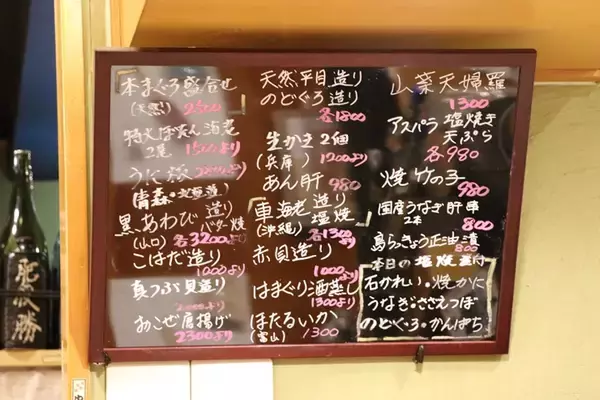 本まぐろ盛合せ
(天然) 2500
特大ぼたん海老
2尾 1500より
うに
(青森・北海道)
黒あわび 造り バター焼
(山口) 各3200より
こはだ造り
1000より
真つぶ貝造り
より
おこぜ唐揚げ
2300より
天然平目造り
のどぐろ造り
各1800
生かき2個
(兵庫) 1200より
あん肝 980
車海老 造り 塩焼
(沖縄) 各1300より
赤貝造り
1000より
はまぐり酒蒸し
1300より
ほたるいか
(富山) 1300
山菜天婦羅
1300
アスパラ 塩焼き 天ぷら
各980
焼竹の子
980
国産うなぎ肝串
2本 800
島らきょう正油漬
800
本日の塩焼
石かれい・焼かに
うなぎ・さざえつぼ
のどぐろ・かんぱち
肥後勝